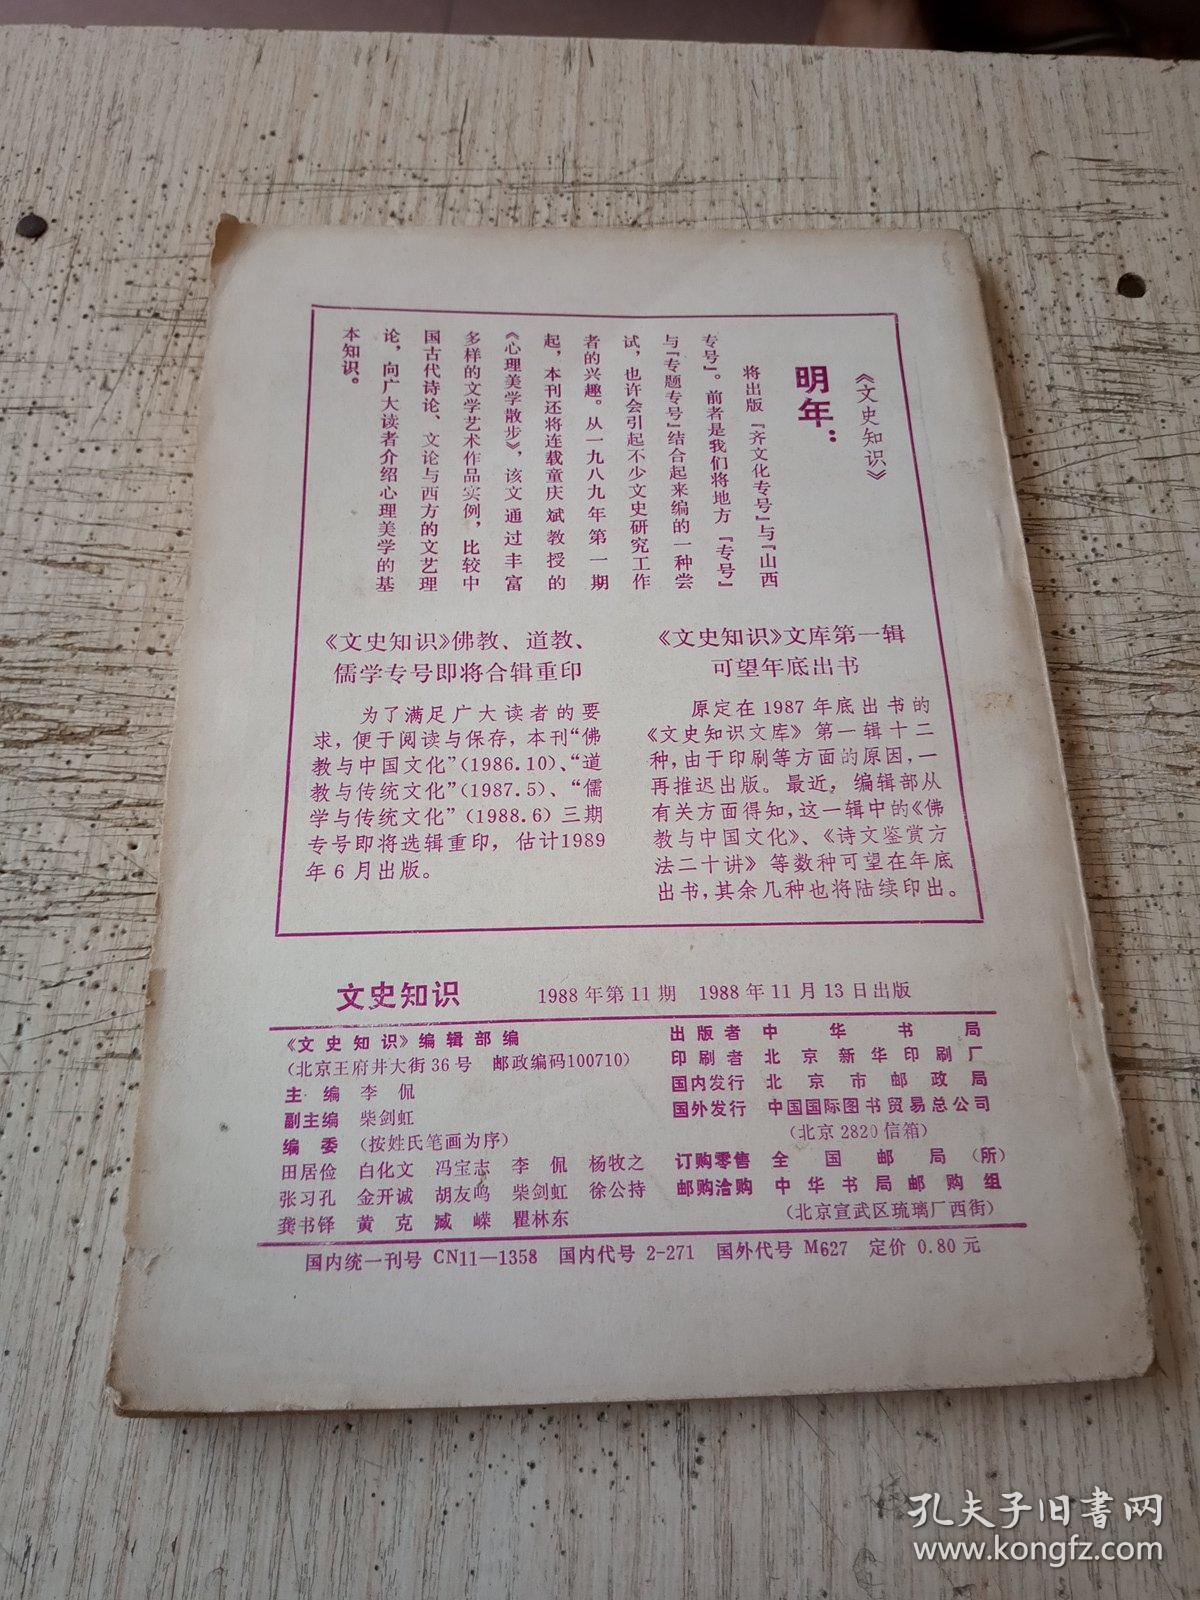 《文史知识》
明年：
将出版『齐文化专号』与『山西
专号』。前者是我们将地方『专号』
与『专题专号』结合起来编的一种尝
试，也许会引起不少文史研究工作
者的兴趣。从一九八九年第一期
起，本刊还将连载童庆斌教授的
《心理美学散步》，该文通过丰富
多样的文学艺术作品实例，比较中
国古代诗论、文论与西方的文艺理
论，向广大读者介绍心理美学的基
本知识。
《文史知识》佛教、道教、
儒学专号即将合辑重印
为了满足广大读者的要
求，便于阅读与保存，本刊“佛
教与中国文化”(1986.10)、“道
教与传统文化”(1987.5)、“儒
学与传统文化”(1988.6)三期
专号即将选辑重印，估计1989
年6月出版。
《文史知识》文库第一辑
可望年底出书
原定在1987年底出书的
《文史知识文库》第一辑十二
种，由于印刷等方面的原因，一
再推迟出版。最近，编辑部从
有关方面得知，这一辑中的《佛
教与中国文化》、《诗文鉴赏方
法二十讲》等数种可望在年底
出书，其余几种也将陆续印出。
文史知识 1988年第11期 1988年11月13日出版
《文史知识》编辑部编
(北京王府井大街36号 邮政编码100710)
主编 李侃
副主编 柴剑虹
编委 (按姓氏笔画为序)
田居俭 白化文 冯宝志 李侃 杨牧之
张习孔 金开诚 胡友鸣 柴剑虹 徐公持
龚书铎 黄克 臧嵘 瞿林东
出版者 中华书局
印刷者 北京新华印刷厂
国内发行 北京市邮政局
国外发行 中国国际图书贸易总公司
(北京2820信箱)
订购零售 全国邮局(所)
邮购洽购 中华书局邮购组
(北京宣武区琉璃厂西街)
国内统一刊号 CN11—1358 国内代号 2-271 国外代号 M627 定价 0.80元
孔夫子旧書网
www.kongfz.com